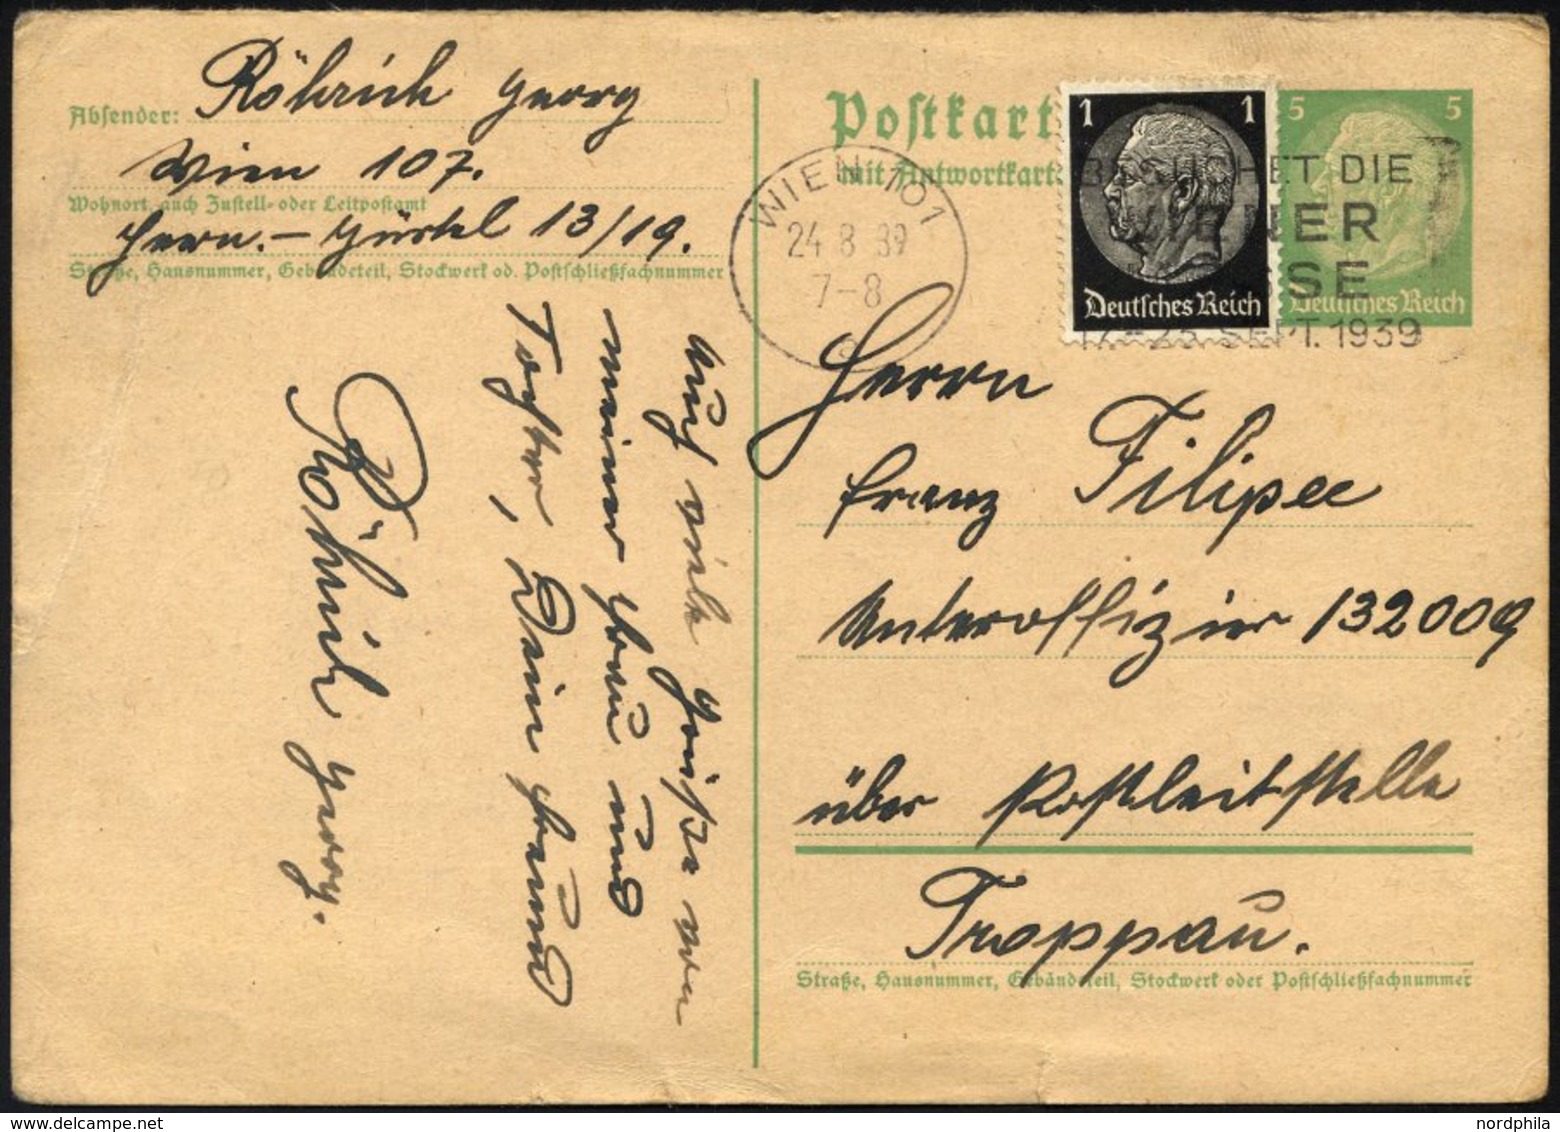 Absender: Röhrich Georg
Wien 107.
Wohnort, auch Zustell- oder Leitpostamt
Hern. - Gürtel 13/19.
Straße, Hausnummer, Gebäudeteil, Stockwerk od. Postschließfachnummer
Auch viele Grüße von
meiner Frau und
Tochter, Dein Freund
Röhrich Georg.
Postkart
mit Antwortkart
WIEN 101
24.8.39
7-8
1 1
Deutsches Reich
5 5
Deutsches Reich
BESUCHET DIE
WIENER
MESSE
17.-23. SEPT. 1939
Herrn
Franz Filipec
Unteroffizier 132009
über Postleitstelle
Troppau.
Straße, Hausnummer, Gebäudeteil, Stockwerk oder Postschließfachnummer
nordphila